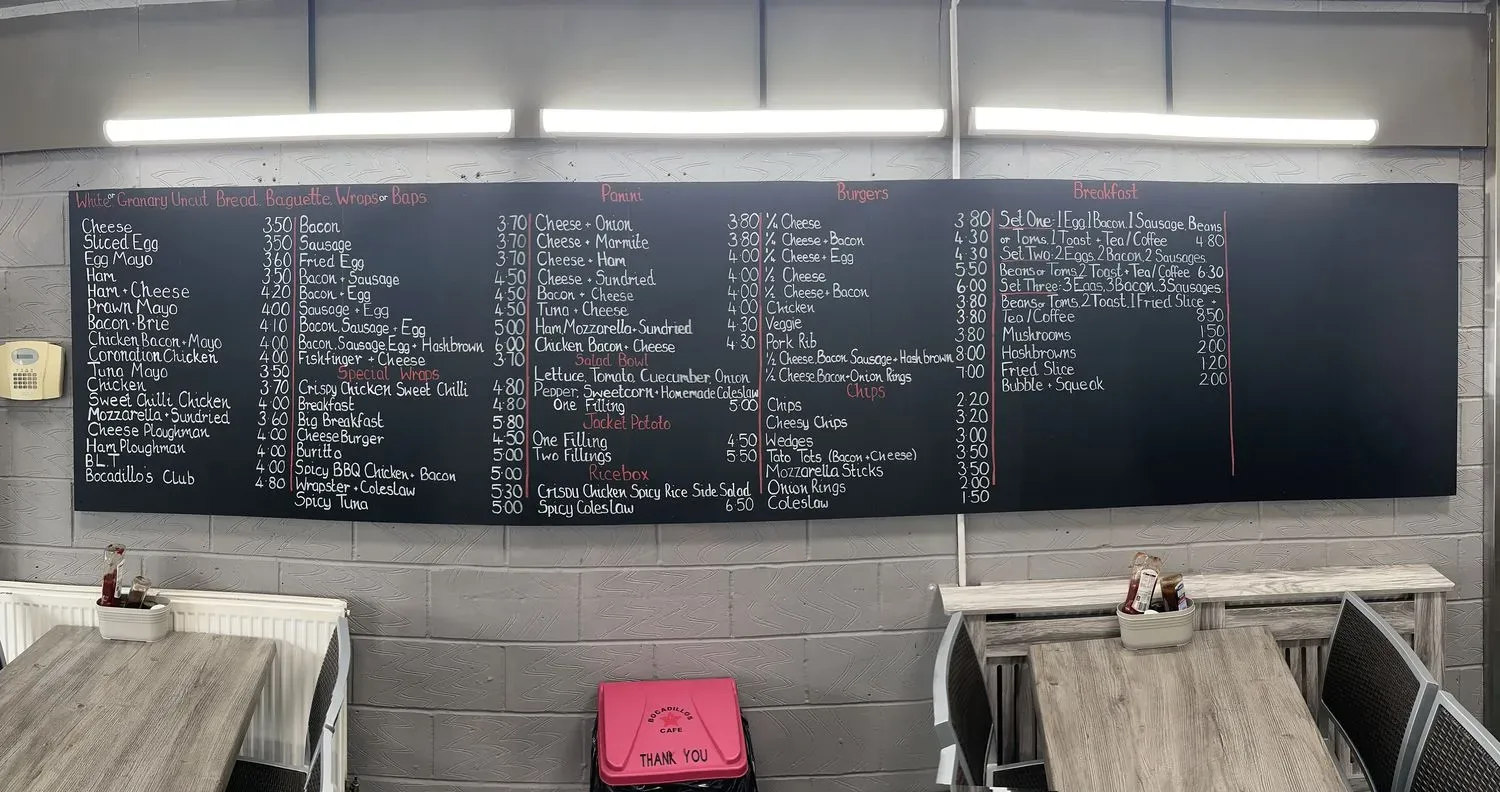 White or Granary Uncut Bread, Baguette, Wraps or Baps
Cheese 3·50
Sliced Egg 3·50
Egg Mayo 3·60
Ham 3·50
Ham + Cheese 4·20
Prawn Mayo 4·00
Bacon·Brie 4·10
Chicken Bacon + Mayo 4·00
Coronation Chicken 4·00
Tuna Mayo 3·50
Chicken 3·70
Sweet Chilli Chicken 4·00
Mozzarella + Sundried 3·60
Cheese Ploughman 4·00
Ham Ploughman 4·00
B.L.T 4·00
Bocadillo's Club 4·80
Bacon 3·70
Sausage 3·70
Fried Egg 3·70
Bacon + Sausage 4·50
Bacon + Egg 4·50
Sausage + Egg 4·50
Bacon, Sausage + Egg 5·00
Bacon, Sausage, Egg + Hashbrown 6·00
Fishfinger + Cheese 3·70
Special Wraps
Crispy Chicken Sweet Chilli 4·80
Breakfast 4·80
Big Breakfast 5·80
CheeseBurger 4·50
Buritto 5·00
Spicy BBQ Chicken + Bacon 5·00
Wrapster + Coleslaw 5·30
Spicy Tuna 5·00
Panini
Cheese + Onion 3·80
Cheese + Marmite 3·80
Cheese + Ham 4·00
Cheese + Sundried 4·00
Bacon + Cheese 4·00
Tuna + Cheese 4·00
Ham Mozzarella + Sundried 4·30
Chicken Bacon + Cheese 4·30
Salad Bowl
Lettuce, Tomato, Cuecumber, Onion
Pepper, Sweetcorn + Homemade Coleslaw
One Filling 5·00
Jacket Potato
One Filling 4·50
Two Fillings 5·50
Ricebox
Crispy Chicken Spicy Rice Side Salad
Spicy Coleslaw 6·50
Burgers
¼ Cheese 3·80
¼ Cheese + Bacon 4·30
¼ Cheese + Egg 4·30
½ Cheese 5·50
½ Cheese + Bacon 6·00
Chicken 3·80
Veggie 3·80
Pork Rib 3·80
½ Cheese, Bacon, Sausage + Hashbrown 8·00
½ Cheese, Bacon + Onion Rings 7·00
Chips
Chips 2·20
Cheesy Chips 3·20
Wedges 3·00
Tato Tots (Bacon + Cheese) 3·50
Mozzarella Sticks 3·50
Onion Rings 2·00
Coleslaw 1·50
Breakfast
Set One: 1 Egg, 1 Bacon, 1 Sausage, Beans
or Toms, 1 Toast + Tea / Coffee 4·80
Set Two: 2 Eggs, 2 Bacon, 2 Sausages,
Beans or Toms, 2 Toast + Tea / Coffee 6·30
Set Three: 3 Eggs, 3 Bacon, 3 Sausages,
Beans or Toms, 2 Toast, 1 Fried Slice +
Tea / Coffee 8·50
Mushrooms 1·50
Hashbrowns 2·00
Fried Slice 1·20
Bubble + Squeak 2·00
BOCADILLOS
CAFE
THANK YOU